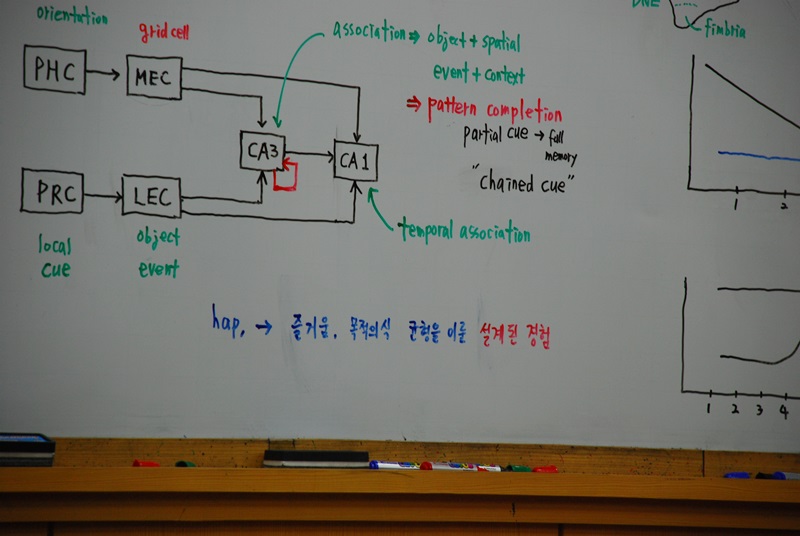 orientation
grid cell
PHC
MEC
association ⇒ object + spatial
event + context
⇒ pattern completion
partial cue → full
memory
"chained cue"
CA3
CA1
PRC
LEC
temporal association
local
cue
object
event
hap. → 즐거움, 목적의식 균형을 이룬 설계된 경험
fimbria
1 2
1 2 3 4